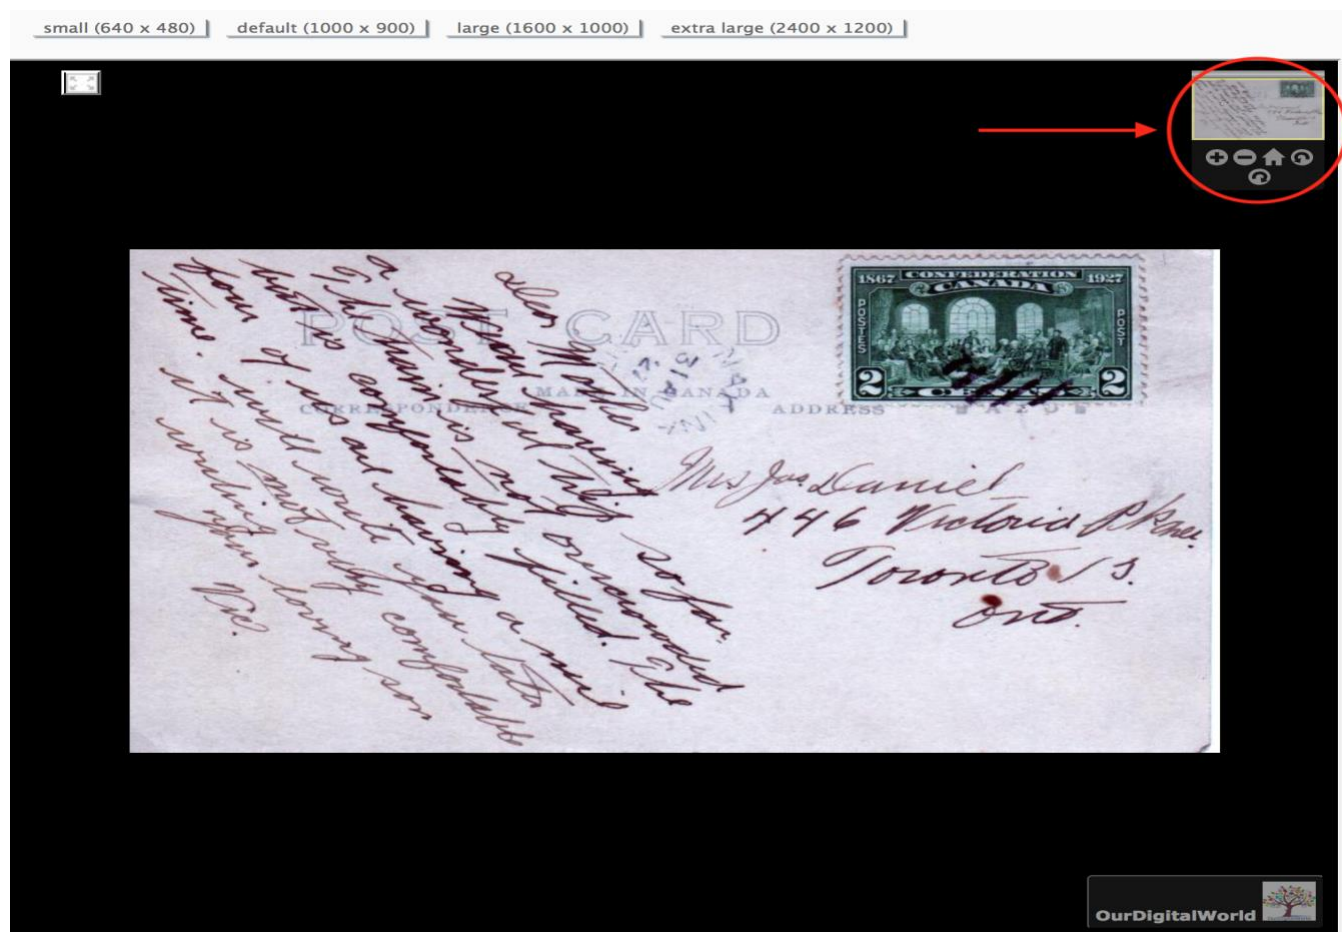 small (640 x 480)
default (1000 x 900)
large (1600 x 1000)
extra large (2400 x 1200)
1867 CONFEDERATION 1927
CANADA
POSTES
POST
2 CENTS 2
POST CARD
MADE IN CANADA
CORRESPONDENCE
ADDRESS
Dear Mother
Weal having
a wonderful trip so far.
The train is not overcrowded
but is comfortably filled. The
four of us are having a nice
time. I will write you later
it is not very comfortable
writing
your loving son
Vic.
Mrs Jas. Daniel
446 Victoria Pk Ave.
Toronto 13.
Ont.
OurDigitalWorld